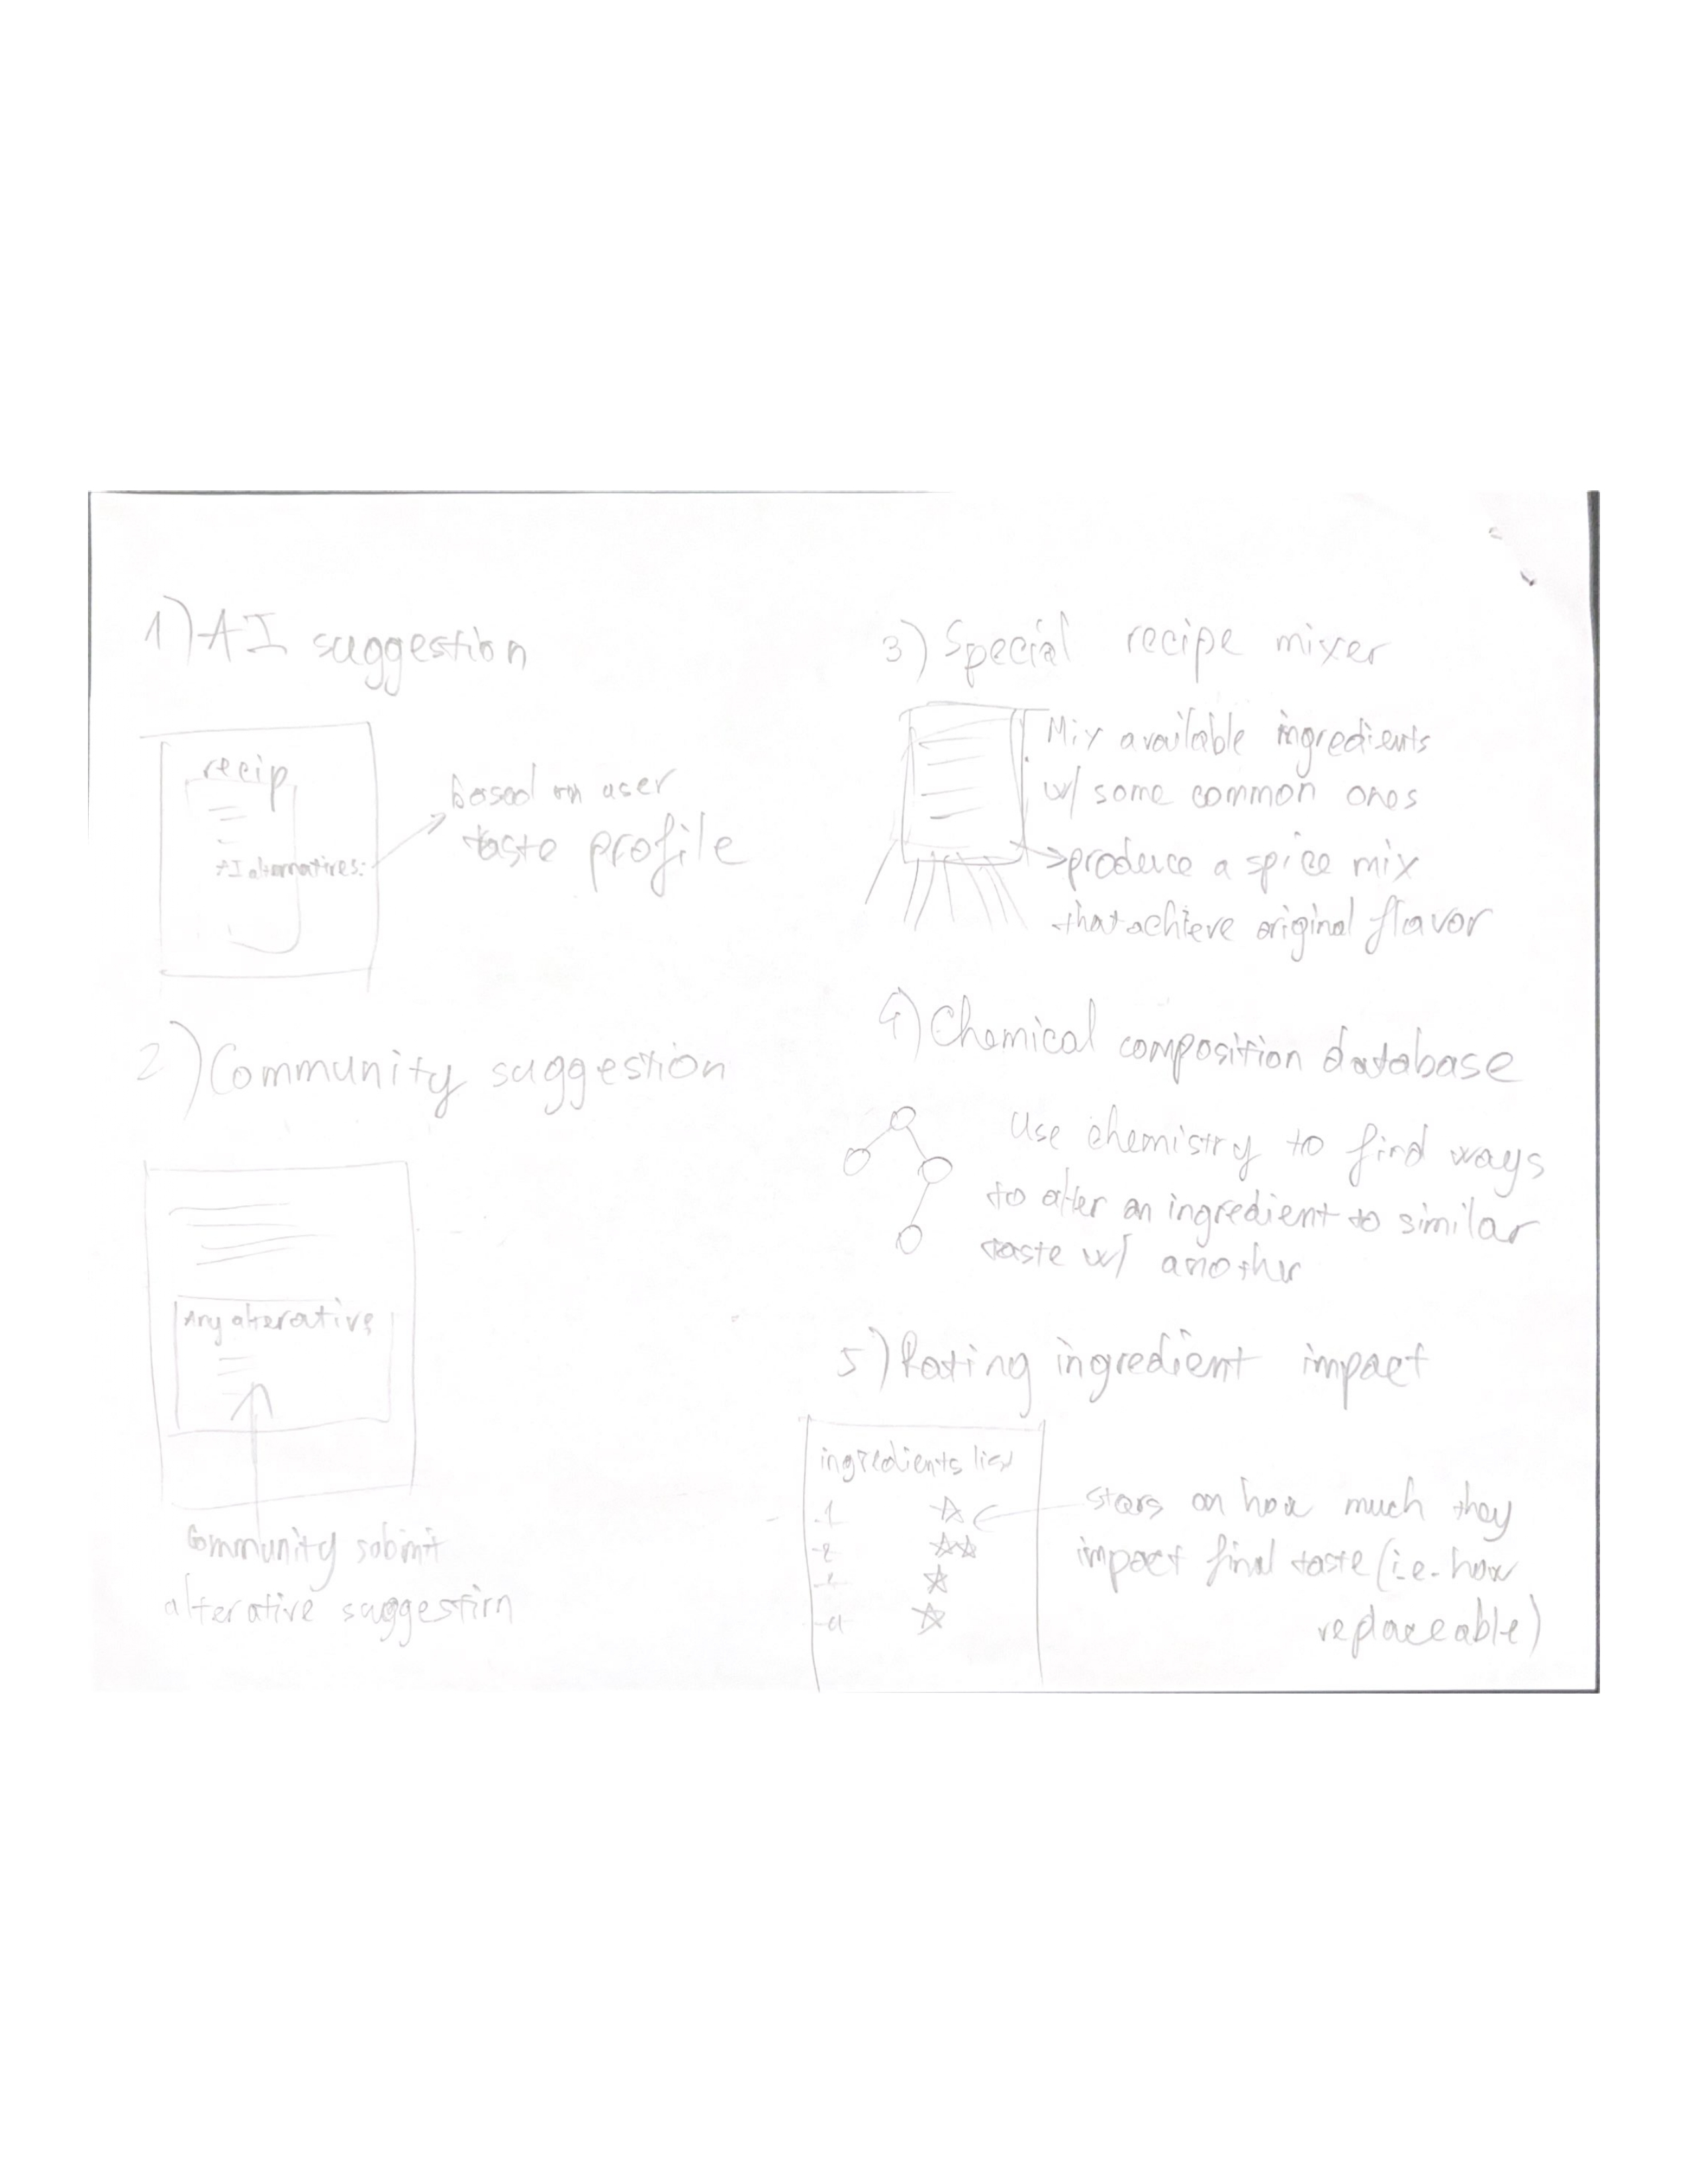 1) AI suggestion
recip
AI alternatives:
based on user
taste profile
2) Community suggestion
Any alterative
Community submit
alterative suggestion
3) Special recipe mixer
Mix available ingredients
w/ some common ones
produce a spice mix
that achieve original flavor
4) Chemical composition database
Use chemistry to find ways
to alter an ingredient to similar
taste w/ another
5) Rating ingredient impact
ingredients list
-1
-2
stars on how much they
impact final taste (i.e. how
replaceable)